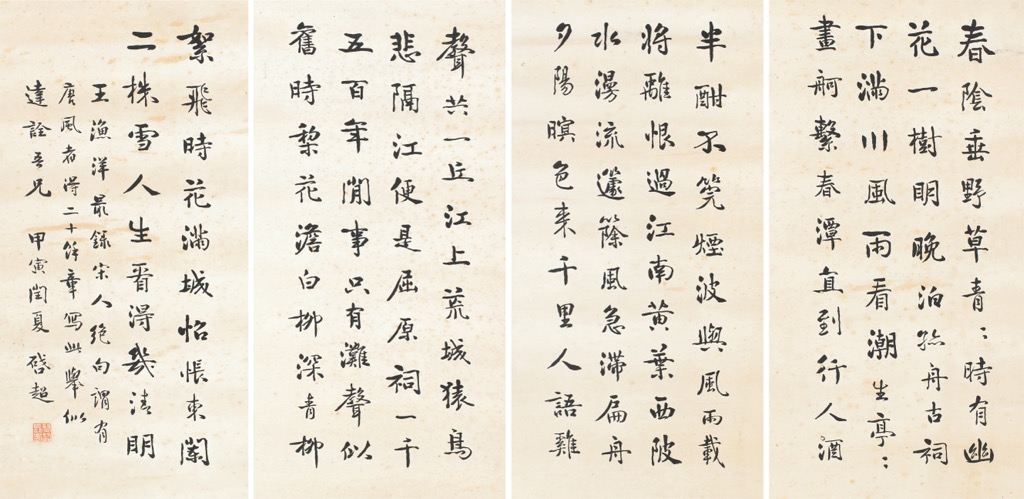 春陰垂野草青〻時有幽
花一樹明晚泊孤舟古祠
下滿川風雨看潮生亭〻
畫舸繫春潭直到行人酒
半酣不筦煙波與風雨載
將離恨過江南黃葉西陂
水漫流籧篨風急滯扁舟
夕陽暝色来千里人語雞
聲共一丘江上荒城猿鳥
悲隔江便是屈原祠一千
五百年閒事只有灘聲似
舊時梨花澹白柳深青柳
絮飛時花滿城怊悵東闌
二株雪人生看得幾清明
王漁洋最錄宋人絕句謂有
唐風者得二十餘章寫此舉似
達詮吾兄 甲寅閏夏 啓超